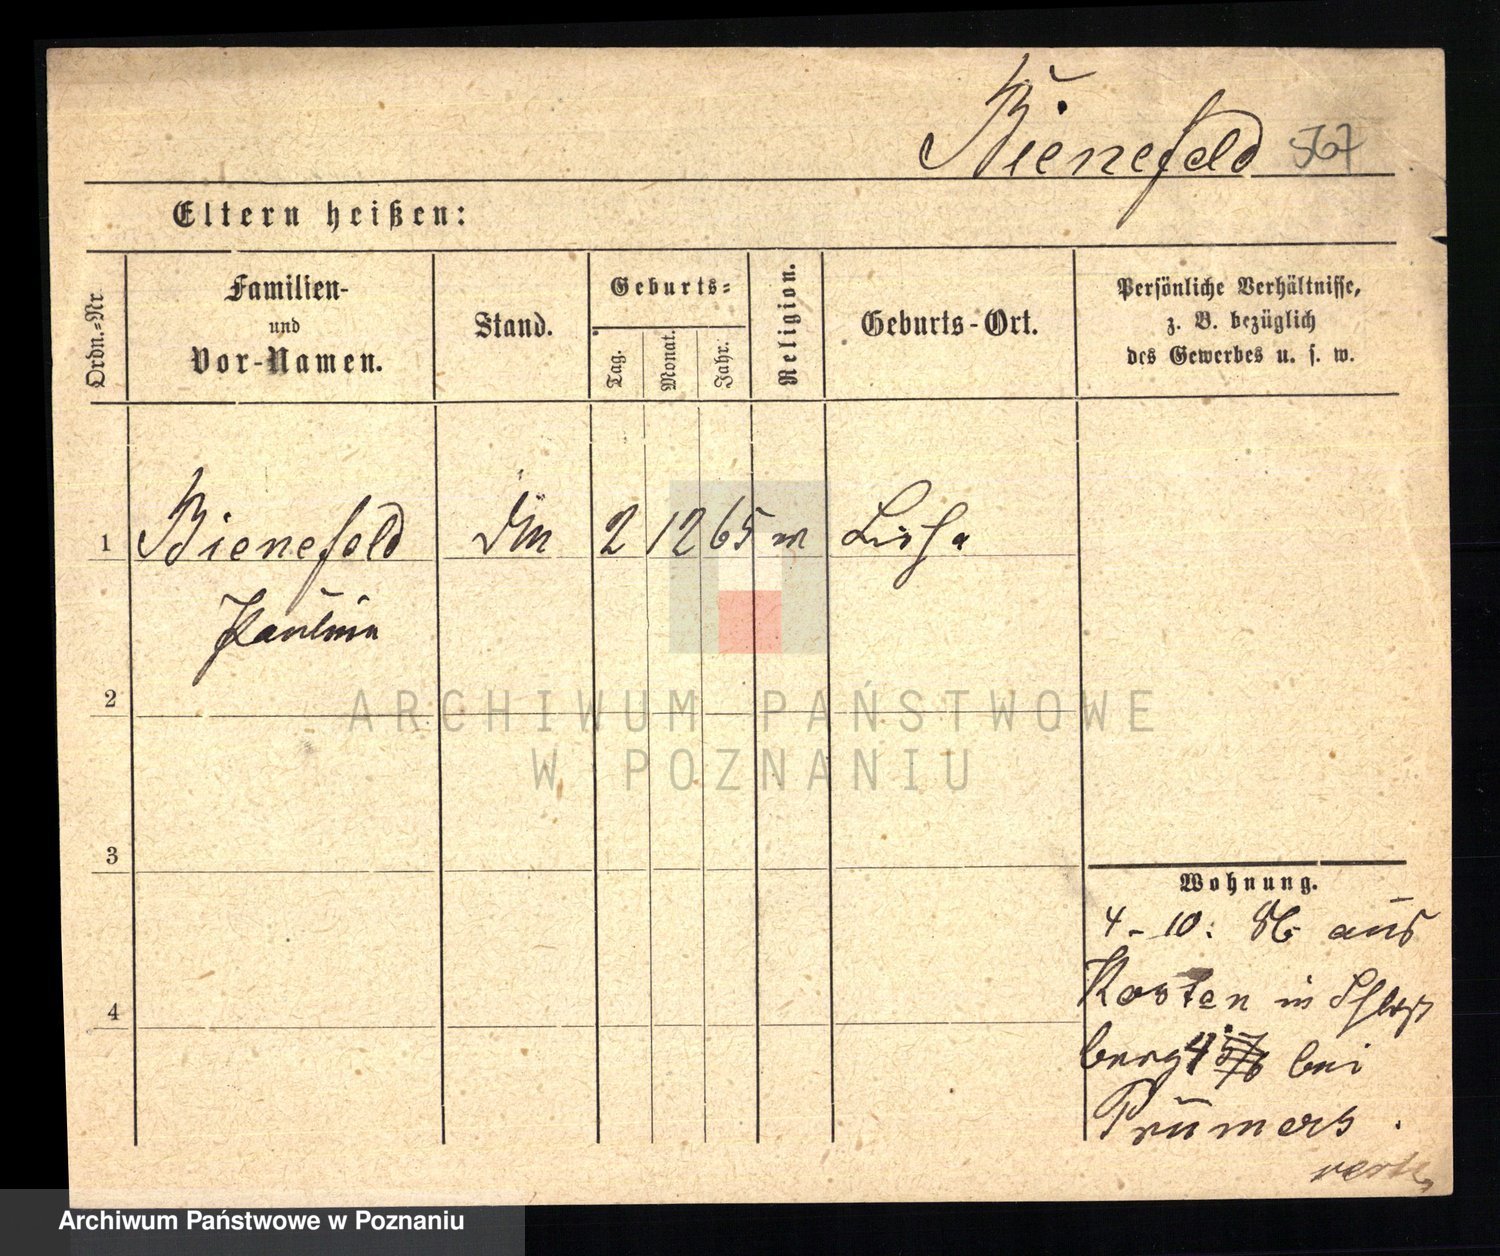 Bienefeld 567
Eltern heißen:
Ordn.-Nr.
Familien-
und
Vor-Namen.
Stand.
Geburts-
Tag.
Monat.
Jahr.
Religion.
Geburts-Ort.
Persönliche Verhältnisse,
z. B. bezüglich
des Gewerbes u. s. w.
1 Bienefeld 2 12 65 Lissa
2
3
4
Wohnung.
4-10. 86 aus
Kosten in Schloß
berg 4 bei
Prümers.
ARCHIWUM PAŃSTWOWE
W POZNANIU
Archiwum Państwowe w Poznaniu